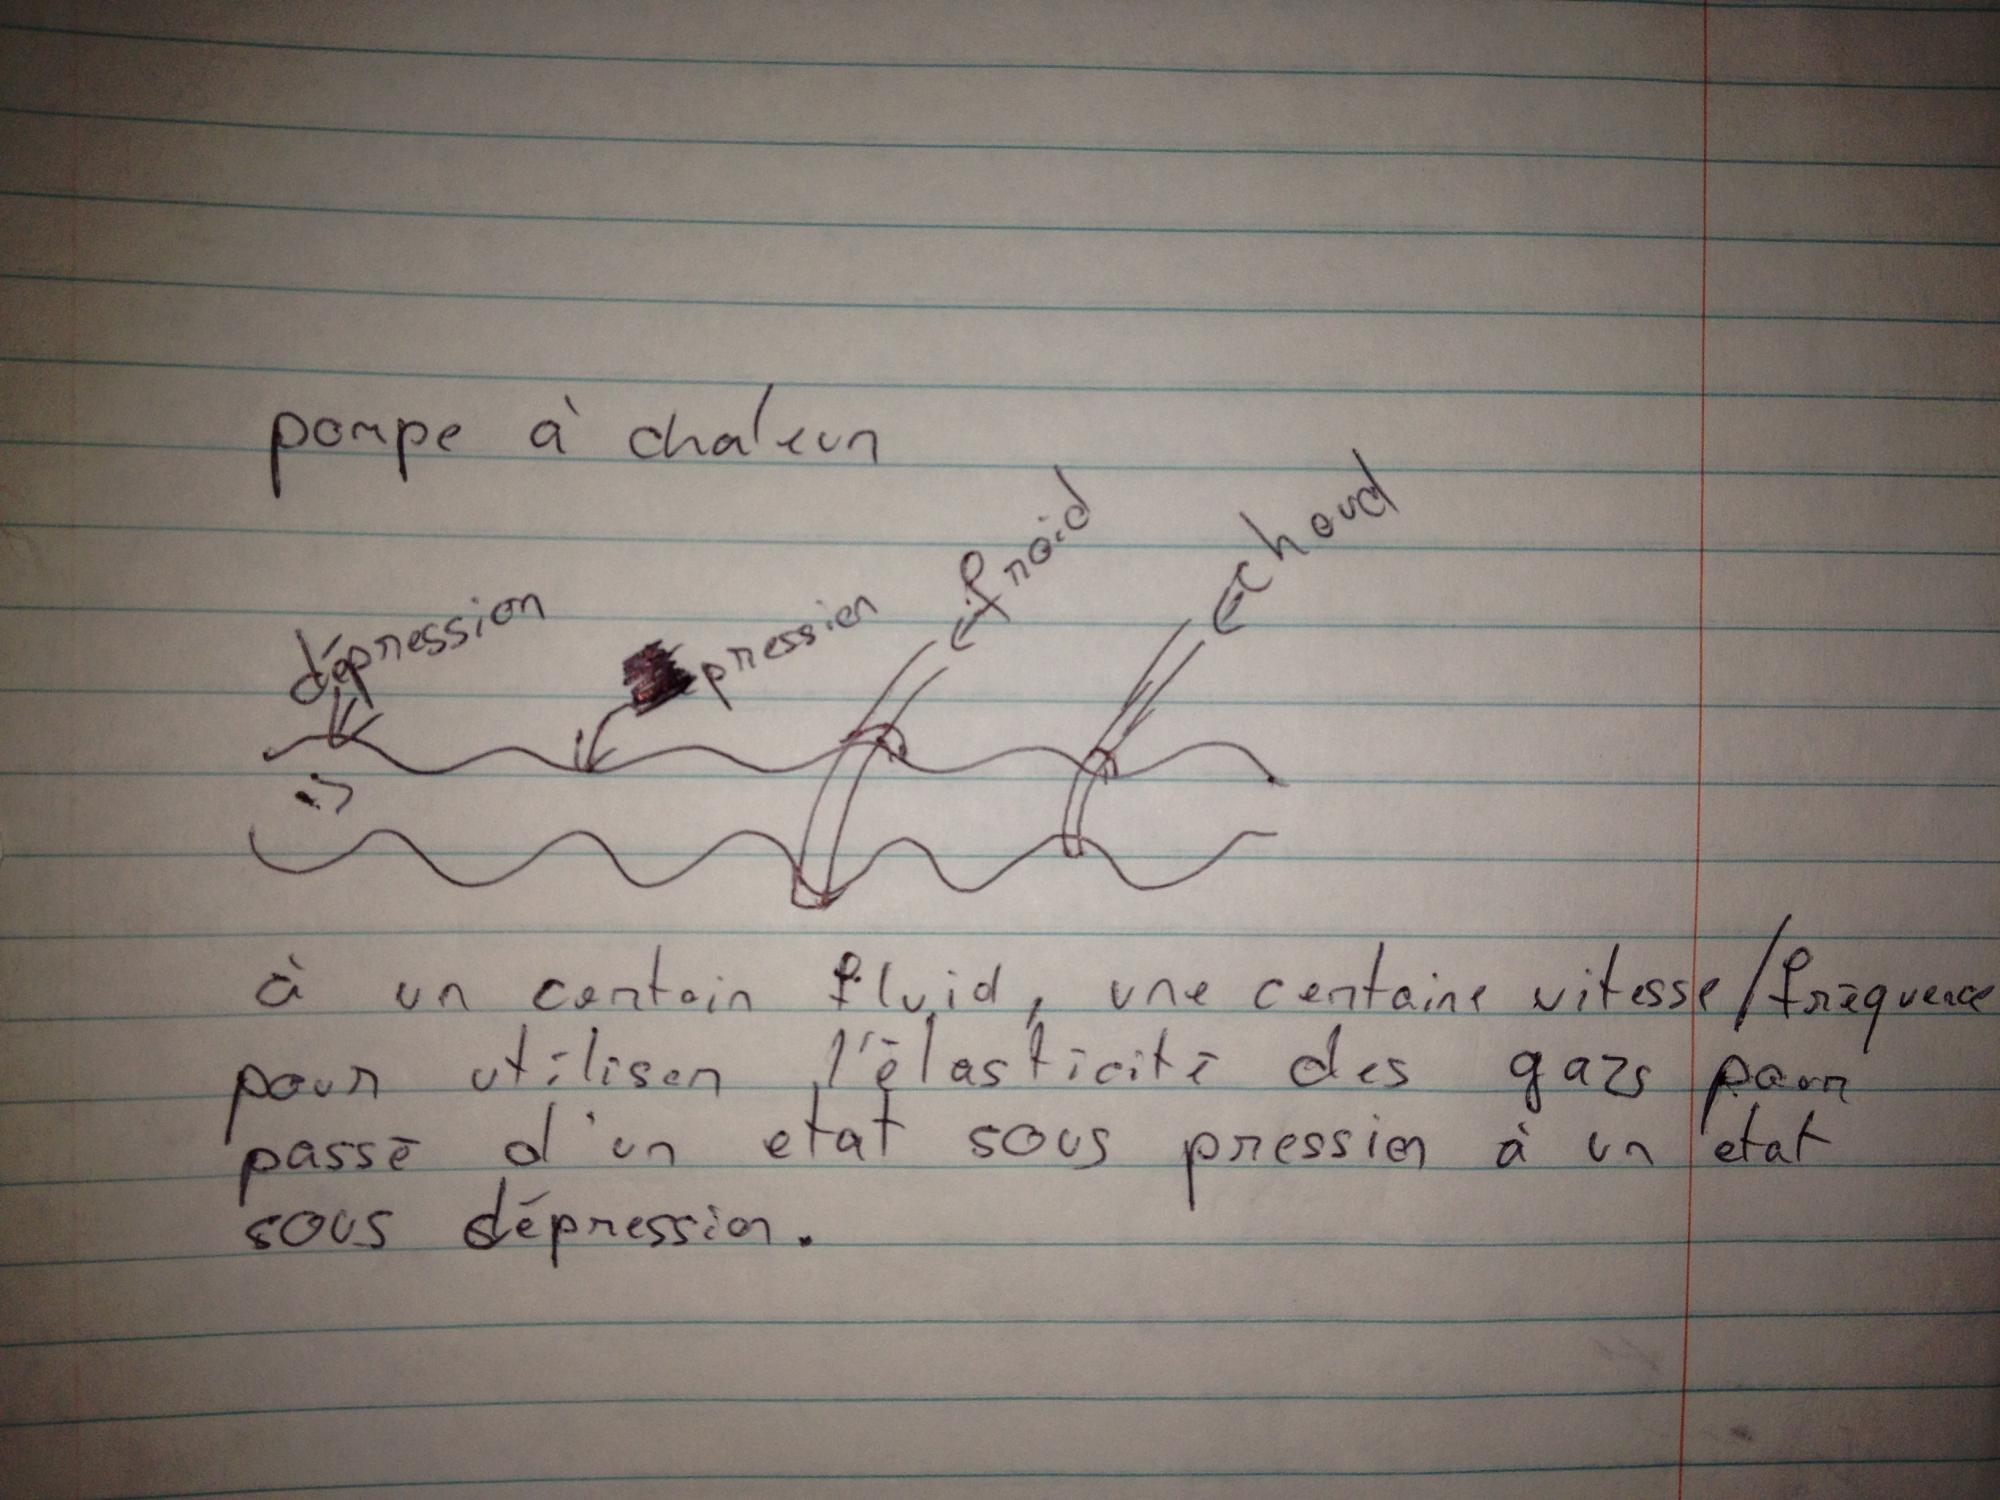 pompe à chaleur
froid
chaud
dépression
pression
à un certain fluid, une certaine vitesse/fréquence
pour utiliser l'élasticité des gazs pour
passé d'un etat sous pression à un etat
sous dépression.